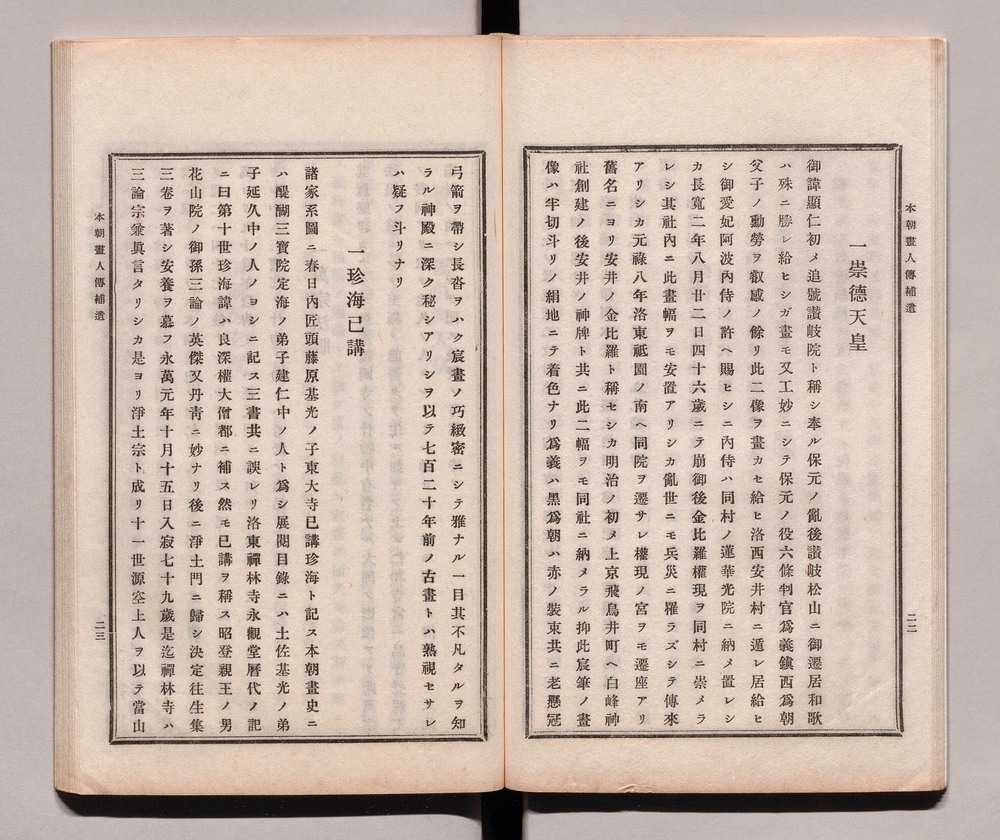 本朝畫人傳補遺
一崇德天皇
御諱顯仁初メ追號讃岐院ト稱シ奉ル保元ノ亂後讃岐松山ニ御遷居和歌
ハ殊ニ勝レ給ヒシガ畫モ又工妙ニシテ保元ノ役六條判官爲義鎭西爲朝
父子ノ動勞ヲ叡感ノ餘リ此二像ヲ畫カセ給ヒ洛西安井村ニ遁レ居給ヒ
シ御愛妃阿波內侍ノ許ヘ賜ヒシニ內侍ハ同村ノ蓮華光院ニ納メ置レシ
カ長寬二年八月廿二日四十六歲ニテ崩御後金比羅權現ヲ同村ニ崇メラ
レシ其社內ニ此畫幅ヲモ安置アリシカ亂世ニモ兵災ニ罹ラズシテ傳來
アリシカ元祿八年洛東祗園ノ南ヘ同院ヲ遷サレ權現ノ宮ヲモ遷座アリ
舊名ニヨリ安井ノ金比羅ト稱セシカ明治ノ初メ上京飛鳥井町ヘ白峰神
社創建ノ後安井ノ神牌ト共ニ此二幅ヲモ同社ニ納メラル抑此宸筆ノ畫
像ハ半切斗リノ絹地ニテ着色ナリ爲義ハ黑爲朝ハ赤ノ裝束共ニ老懸冠
二二
弓箭ヲ帶シ長沓ヲハク宸畫ノ巧緻密ニシテ雅ナル一目其不凡タルヲ知
ラル神殿ニ深ク秘シアリシヲ以テ七百二十年前ノ古畫トハ熟視セサレ
ハ疑フ斗リナリ
一珍海已講
諸家系圖ニ春日內匠頭藤原基光ノ子東大寺已講珍海ト記ス本朝畫史ニ
ハ醍醐三寶院定海ノ弟子建仁中ノ人ト爲シ展閱目錄ニハ土佐基光ノ弟
子延久中ノ人ノヨシニ記ス三書共ニ誤レリ洛東禪林寺永觀堂曆代ノ記
ニ曰第十世珍海諱ハ良深權大僧都ニ補ス然モ已講ヲ稱ス昭登親王ノ男
花山院ノ御孫三論ノ英傑又丹靑ニ妙ナリ後ニ淨土門ニ歸シ決定往生集
三卷ヲ著シ安養ヲ慕フ永萬元年十月十五日入寂七十九歲是迄禪林寺ハ
三論宗兼眞言タリシカ是ヨリ淨土宗ト成リ十一世源空上人ヲ以テ當山
本朝畫人傳補遺
二三